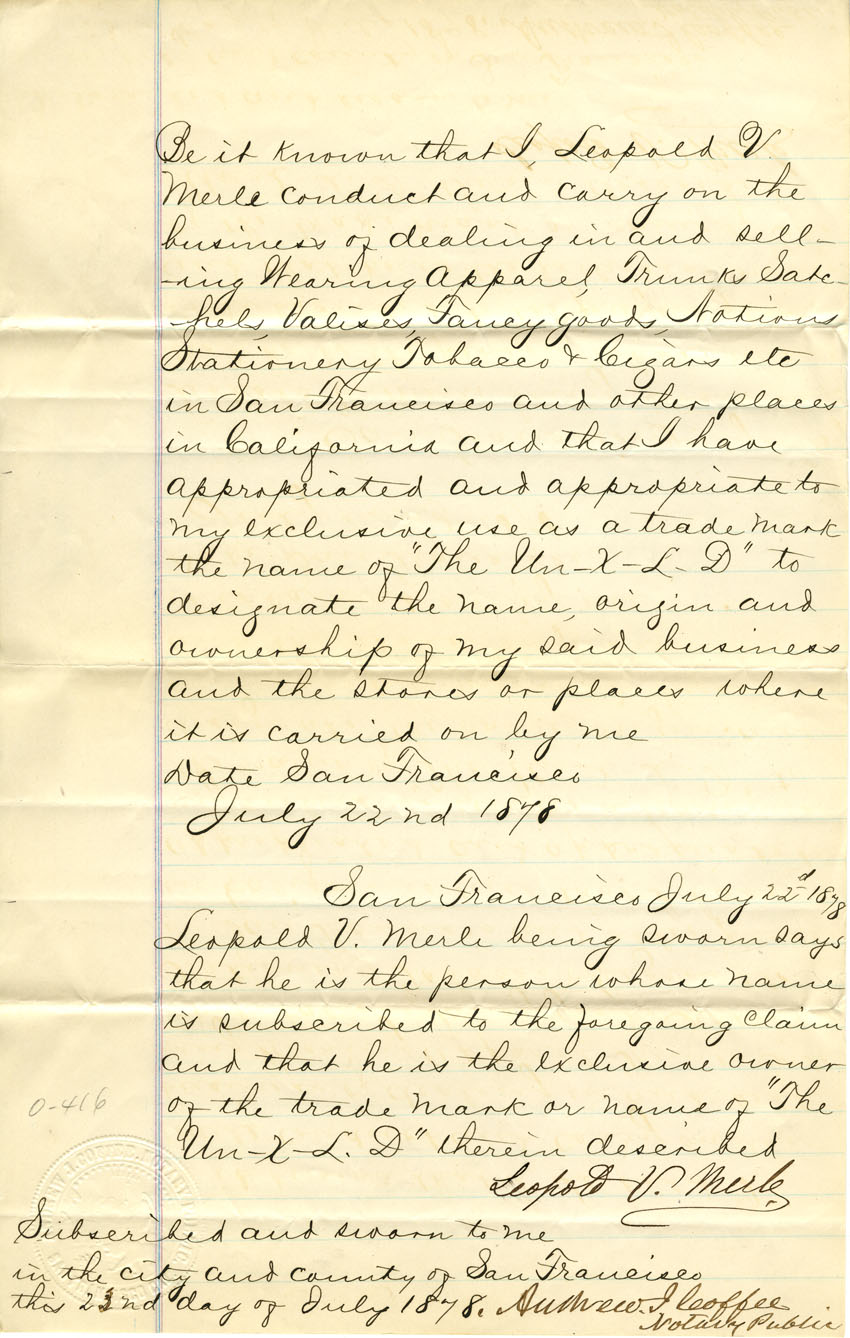 Be it known that I, Leopold V.
Merle conduct and carry on the
business of dealing in and sell-
-ing Wearing Apparel, Trunks Satc-
-hels, Valises, Fancy goods, Notions
Stationery Tobacco & Cigars etc
in San Francisco and other places
in California and that I have
appropriated and appropriate to
my exclusive use as a trade mark
the name of "The Un-X-L-D" to
designate the name, origin and
ownership of my said business
and the stores or places where
it is carried on by me
Date San Francisco
July 22nd 1878
San Francisco July 22d 1878
Leopold V. Merle being sworn says
that he is the person whose name
is subscribed to the foregoing claim
and that he is the exclusive owner
of the trade mark or name of "The
Un-X-L. D" therein described
Leopold V. Merle
0-416
Subscribed and sworn to me
in the city and county of San Francisco
this 22nd day of July 1878. Andrew J Coffee
Notary Public